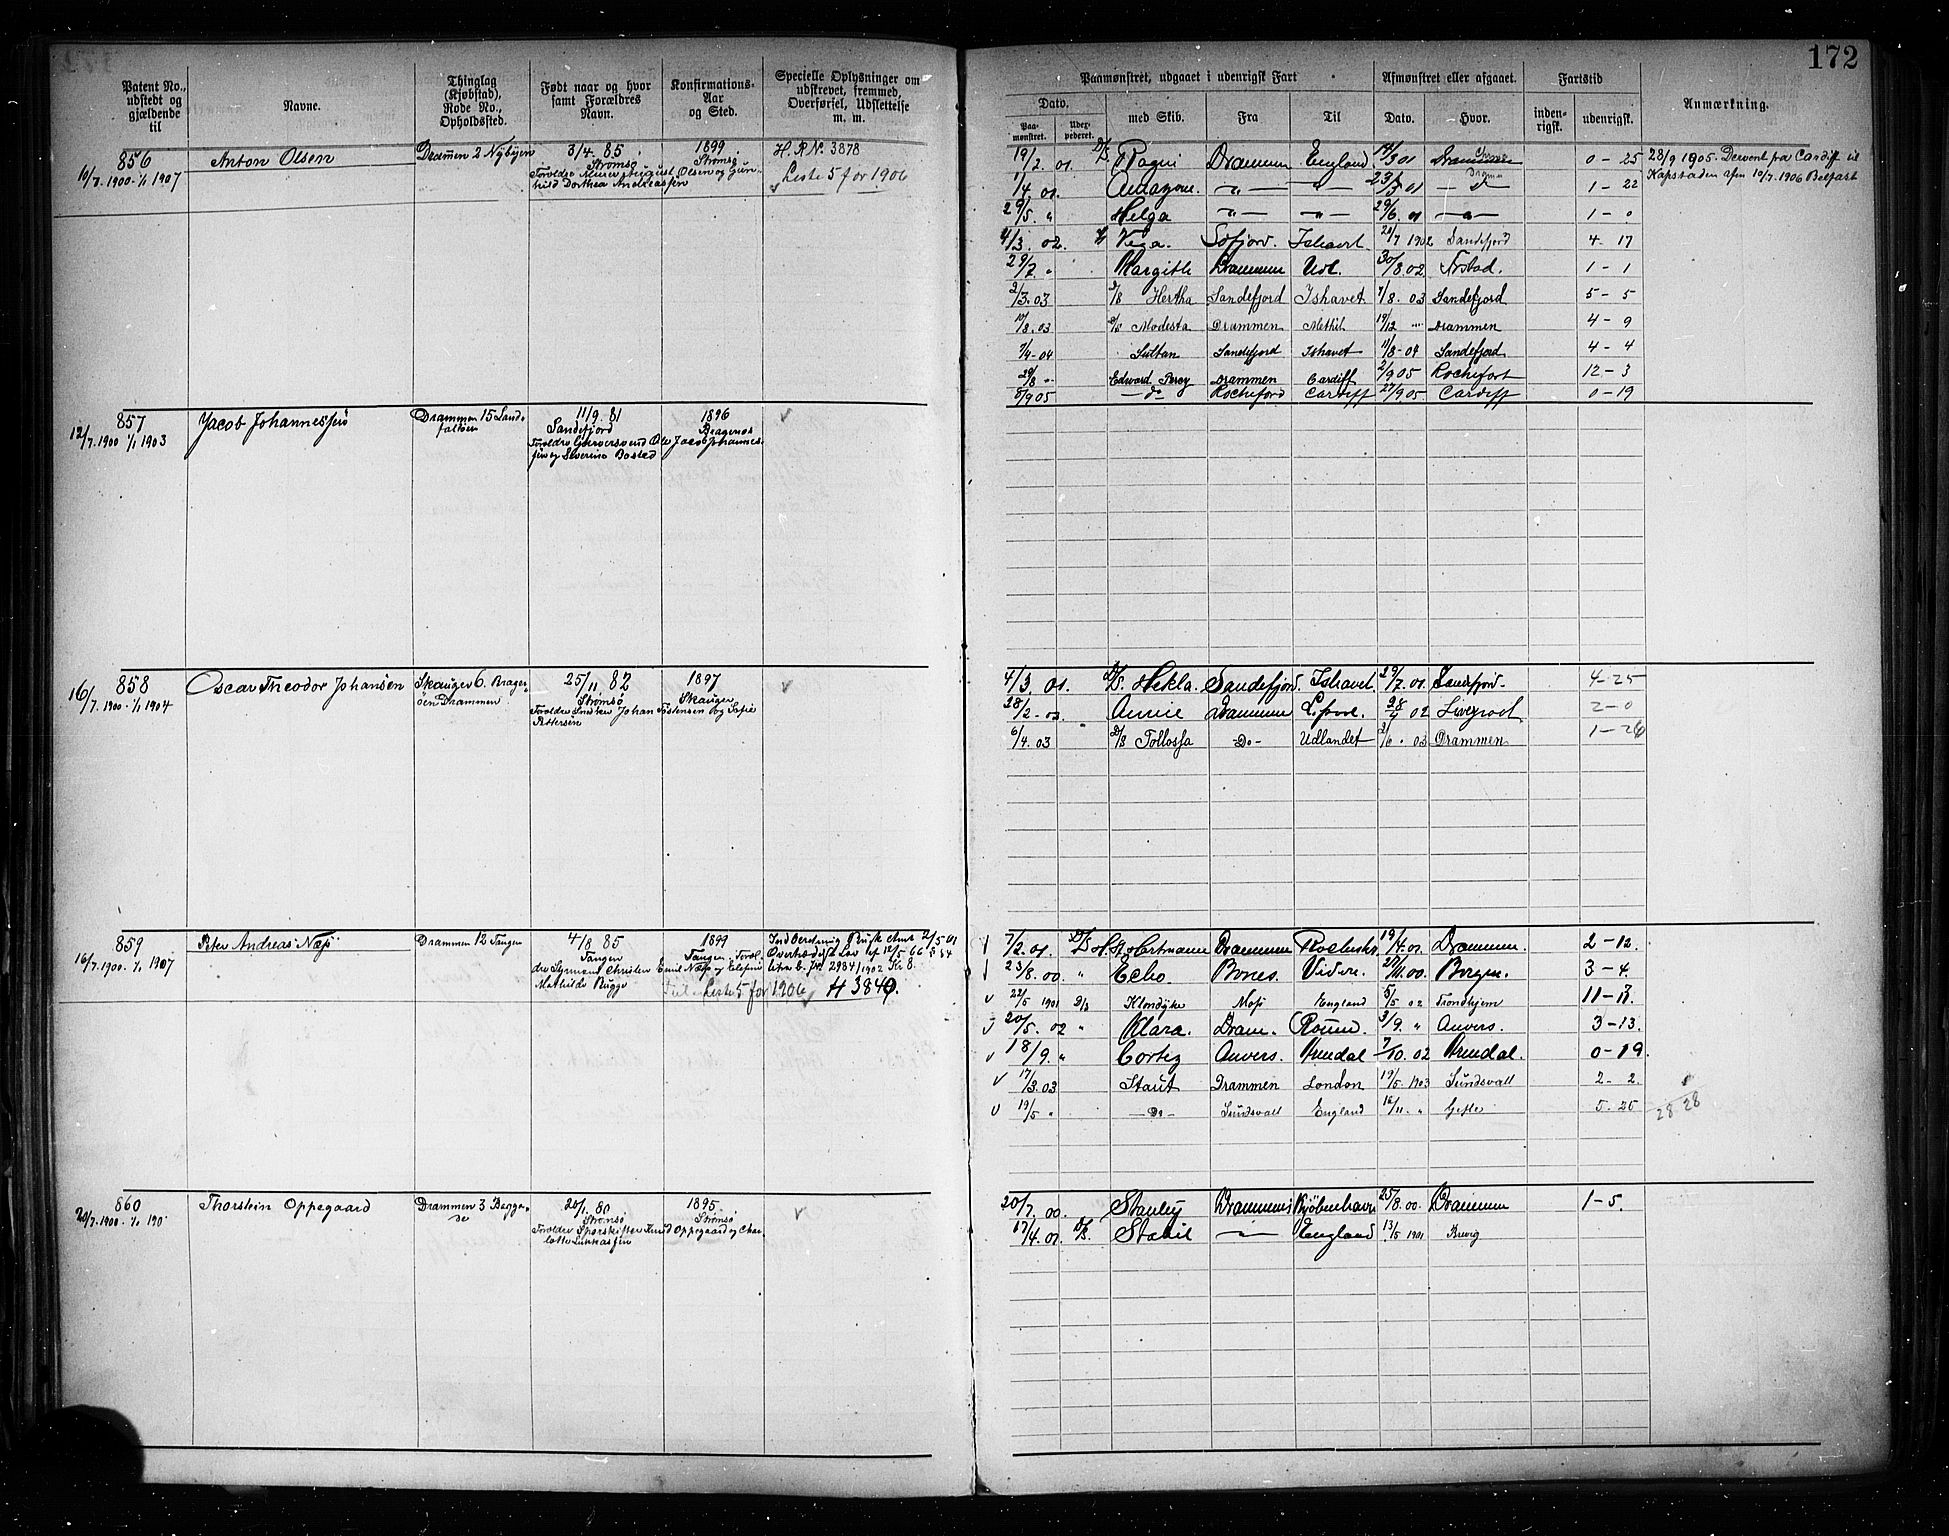 172
Patent No., udstedt og gjældende til
Navne.
Thinglag (Kjøbstad), Rode No., Opholdssted.
Født naar og hvor samt Forældres Navn.
Konfirmations-Aar og Sted.
Specielle Oplysninger om udskrevet, fremmed, Overførsel, Udslettelse m. m.
Paamønstret, udgaaet i udenrigsk Fart
Afmønstret eller afgaaet.
Fartstid
Anmærkning.
Dato.
Paa-mønstret.
Udex-pederet.
med Skib.
Fra
Til
Dato.
Hvor.
inden-rigsk.
udenrigsk.
856
10/7. 1900 - 1/1 1907
Anton Olsen
Drammen 2 Nybyen
3/4. 85
Strømsø
Forældre Murer August Olsen og Gun-
hild Dorthea Andreassen
1899
Strømsø
H. R No. 3878
Liste 5 for 1906
19/2. 01. D/S Ragni Drammen England 14/3 01 Drammen 0 - 25
28/9 1905. Dervent fra Cardiff til
Kapstaden afm 10/7. 1906 Belfast
1/4. 01. Amazone. 23/5 01 1 - 22
29/5. " Helga 29/6. 01 1 - 0
4/3. 02. Vega. Ishavet. 21/7 1902 Sandefjord 4 - 17
29/7. " Margith Drammen Udl. 30/8 02 1 - 1
2/3. 03 D/S Hertha Sandefjord Ishavet 7/8. 03 Sandefjord 5 - 5
10/8. 03 D/S Modesta Drammen Methil 19/12 Drammen 4 - 9
7/4 - 04 Sultan Sandefjord Ishavet 11/8 - 04 Sandefjord 4 - 4
29/8 Edward Percy Drammen Cardiff 2/9 05 Rochefort 12 - 3
8/9 05 do Rocheford Cardiff 27/9 05 Cardiff 0 - 19
857
12/7. 1900 1/1 1903
Jacob Johannessen
Drammen 15 Land-
falløen
11/9. 81
Sandefjord
1896
Bragenes
Forældre Garversvend Ole Jacob Johannes-
sen og Severine Bostad
858
16/7. 1900 - 1/1 1904
Oscar Theodor Johansen
Skauger 6. Brager-
øen Drammen
25/11. 82
Strømsø
1897
Skauger
Forældre Snedker Johan Torstensen og Sofie
Pettersen
4/3. 01. D/S. Hekla. Sandefjord. Ishavet. 29/7. 01. Sandefjord. 4 - 25
28/2 - 02 Annie Drammen 28/4 02 Liverpool 2 - 0
6/4. 03 D/S Tollosfa Do Udlandet 2/6. 03 Drammen 1 - 26
859
16/7. 1900. 1/1 1907
Peter Andreas Næss
Drammen 12 Tangen
4/8 85
Tangen
1899
Tangen. Foræl-
dre Styrmand Christen Emil Næss og Elefine
Mathilde Bugge
Liste 5 for 1906 H 3849.
7/2. 01. D/S H. A. Hartmann Drammen 19/4. 01. Drammen. 2 - 12.
23/8. 00. " Echo. Bones. 27/11. 00. Bergen. 3 - 4.
22/5 1901 D/S Klondyke Moss England 5/5 02 Trondhjem 11 - 13.
20/5. 02 " Klara. Dram. Rouen. 3/9. " Anvers. 3 - 13.
18/9. " Cortez Anvers. Arendal 7/10. 02 Arendal. 0 - 19.
17/3. 03 Staut Drammen London 19/5. 1903 Sundsvall 2 - 2.
19/5 " Do Sundsvall England 16/11. " Gefle 5 - 25
28 28
860
20/7. 1900. 1/1 190
Thorstein Oppegaard
Drammen 3 Begge-
se
20/1. 80
Strømsø
1895
Strømsø
Forældre Sporskifter Knud Oppegaard og Char-
lotte Lukkassen
20/7. 00. Stanley Drammen Kjøbenhavn 25/8. 00. Drammen 1 - 5.
17/4. 01. D/S. Stabil England 13/5 1901 Brevig